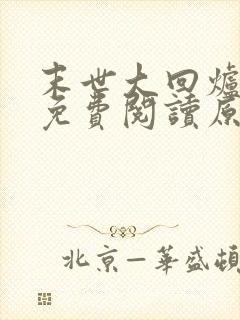 末世大回爐
免費閱讀原
北京—華盛頓